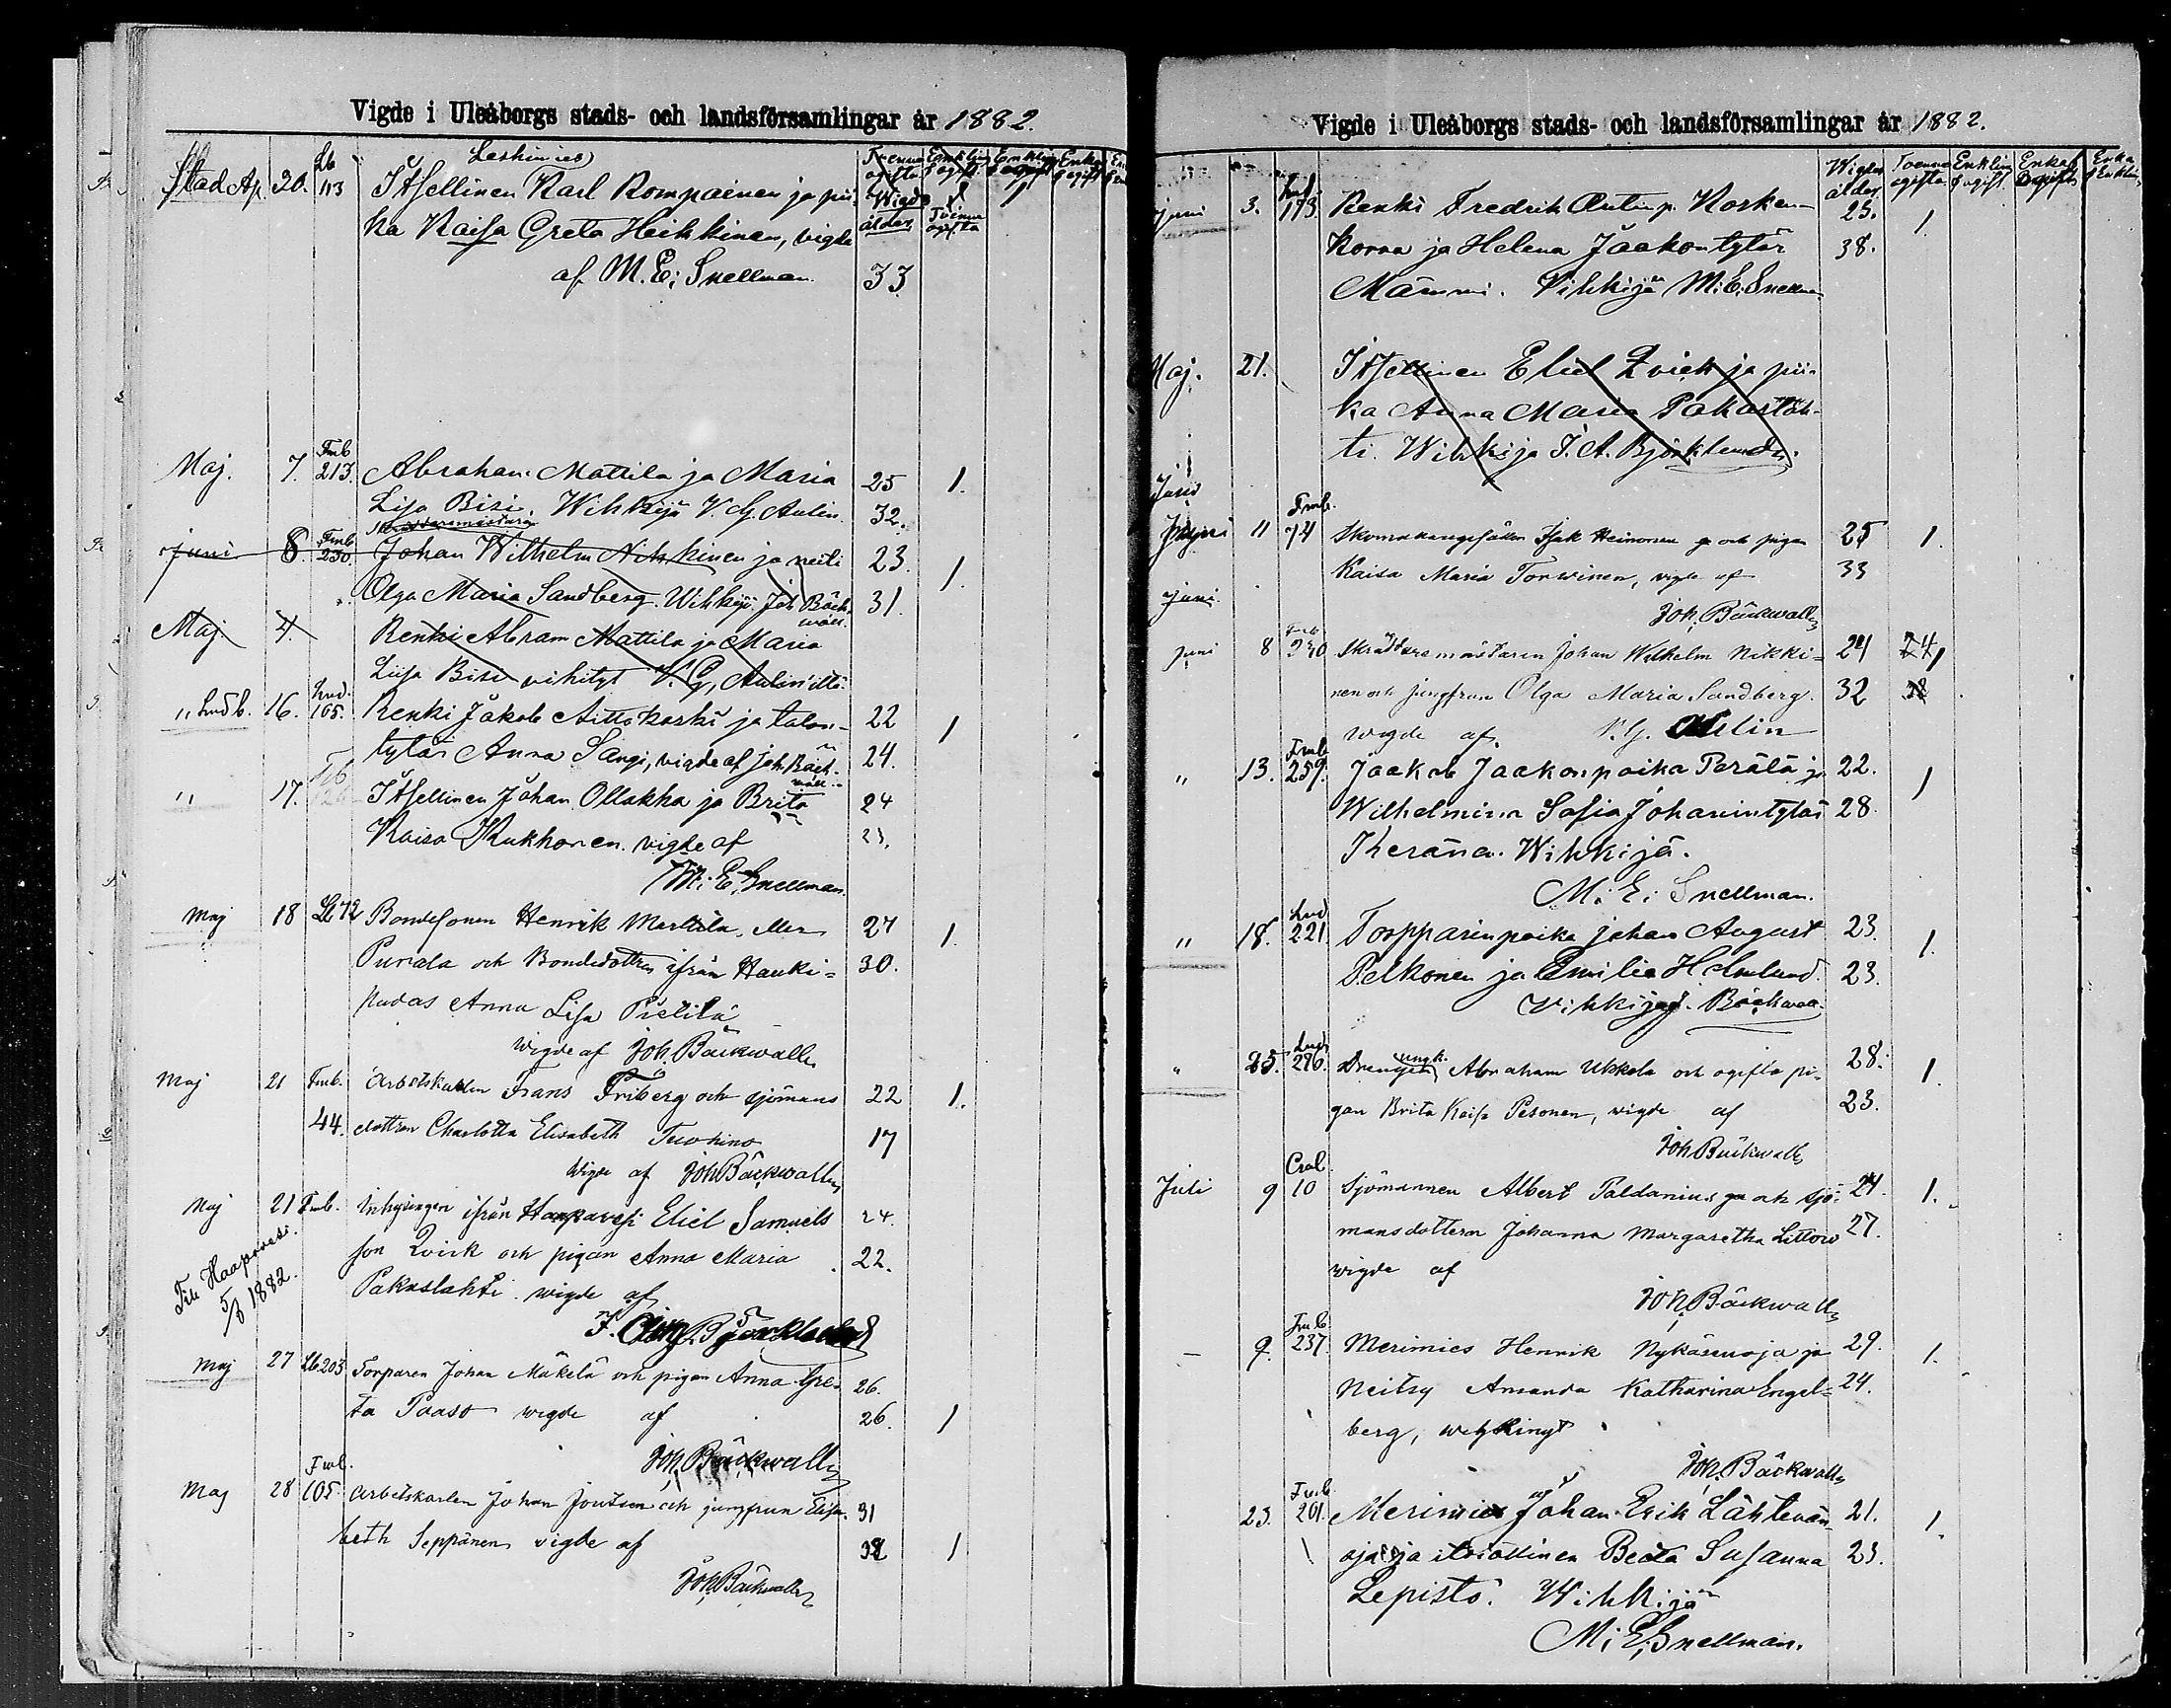 Vigde i Uleåborgs stads- och landsförsamlingar år 1882.
Leskimies
Stad Ap. 30. Lb 113 Itsellinen Karl Rompainen ja pii-
ka Kaisa Greta Heikkinen, vigde
af M. E. Snellman. 33
Maj. 7. Fmb 213. Abraham Mattila ja Maria 25 1.
Lisa Bisi. Wihkijä V. G. Aulin. 32.
Juni 8. Fmb 230. Johan Wilhelm Nikkinen ja neiti 23. 1.
Olga Maria Sandberg. Wihkijä Joh. Bäck- 31.
wall.
Maj. 4. Renki Abram Mattila ja Maria
Liisa Bisi vihityt V. G. Aulin'ilta.
" Lndb. 16. Lnd. 105. Renki Jakob Aittokoski ja talon- 22 1
tytär Anna Sangi, vigde af Joh. Bäck- 24.
wall.
" 17. Itsellinen Johan Ollakka ja Brita 24
Kaisa Kukkonen. vigde af 23.
M. E. Snellman.
Maj 18 Lb 72 Bondesonen Henrik Marttila, eller 27 1.
Purala och Bondedottren ifrån Hauki= 30.
pudas Anna Lisa Pietilä
Wigde af Joh. Bäckwall
Maj 21 Fmb. Arbetskarlen Frans Friberg och sjömans 22 1.
44. dottren Charlotta Elisabeth Tuohino 17
Wigde af Joh. Bäckwall
Maj 21 Fmb. Inhysingen ifrån Haapavesi Eliel Samuels 24.
son Qvick och pigan Anna Maria 22.
Pakaslahti wigde af
Till Haapavesi
5/6 1882.
Björklund
Maj 27 Lb 203 Torparen Johan Mäkelä och pigan Anna Gre- 26.
ta Paaso wigde af 26. 1
Joh. Bäckwall
Maj 28 Fmb. 105 Arbetskarlen Johan Joutsen och jungfrun Elisa- 31
beth Seppänen vigde af 1
Joh. Bäckwall
Vigde i Uleåborgs stads- och landsförsamlingar år 1882.
Wigdes ålder Tvenne ogifta Enkling o ogift. Enka o ogift Enka o Enkling
Juni 3. Lnd 173 Renki Fredrik Antinp. Korken- 25. 1.
korva ja Helena Jaakontytär 38.
Mämmi. Vihkijä M. E. Snellman
Maj. 21. Itsellinen Eliel Qvick ja pii-
ka Anna Maria Pakaslah-
ti. Wihkijä J. A. Björklund.
Juni
11 Fmb. 74 Skomakaregesällen Isak Heinonen och pigan 25 1.
Kaisa Maria Torwinen, vigde af 33
juni. Joh. Bäckwall
Juni 8 Fmb 230 Skräddaremästaren Johan Wilhelm Nikki= 24 1
nen och jungfrun Olga Maria Sandberg. 32
wigde af V. G. Aulin
" 13. Fmb 259. Jaakob Jaakonpoika Perälä ja 22. 1
Wilhelmina Sofia Johanintytär 28.
Keräna. Wihkijä.
M. E. Snellman.
" 18. Lnd 221 Torpparinpoika Johan August 23. 1.
Pelkonen ja Emilia Holmlund. 23.
Vihkijä J. Bäckwall.
" 25. Lnd 296. Drengen ungk. Abraham Ukkola och ogifta pi- 28. 1.
gan Brita Kaisa Pesonen, vigde af 23.
Joh. Bäckwall
Juli 9 10 Sjömannen Albert Paldanius och sjö- 24. 1.
mansdottern Johanna Margaretha Littow 27.
wigde af
Joh. Bäckwall
9. Fmb 237. Merimies Henrik Nykäsenoja ja 29. 1.
Neitsy Amanda Katharina Engel= 24.
berg,
Joh. Bäckwall
23. Fmb 201. Merimies Johan Erik Lähtevän- 21. 1.
oja ja itsiällinen Beata Susanna 23.
Lepistö. Wihkijä
M. E. Snellman.